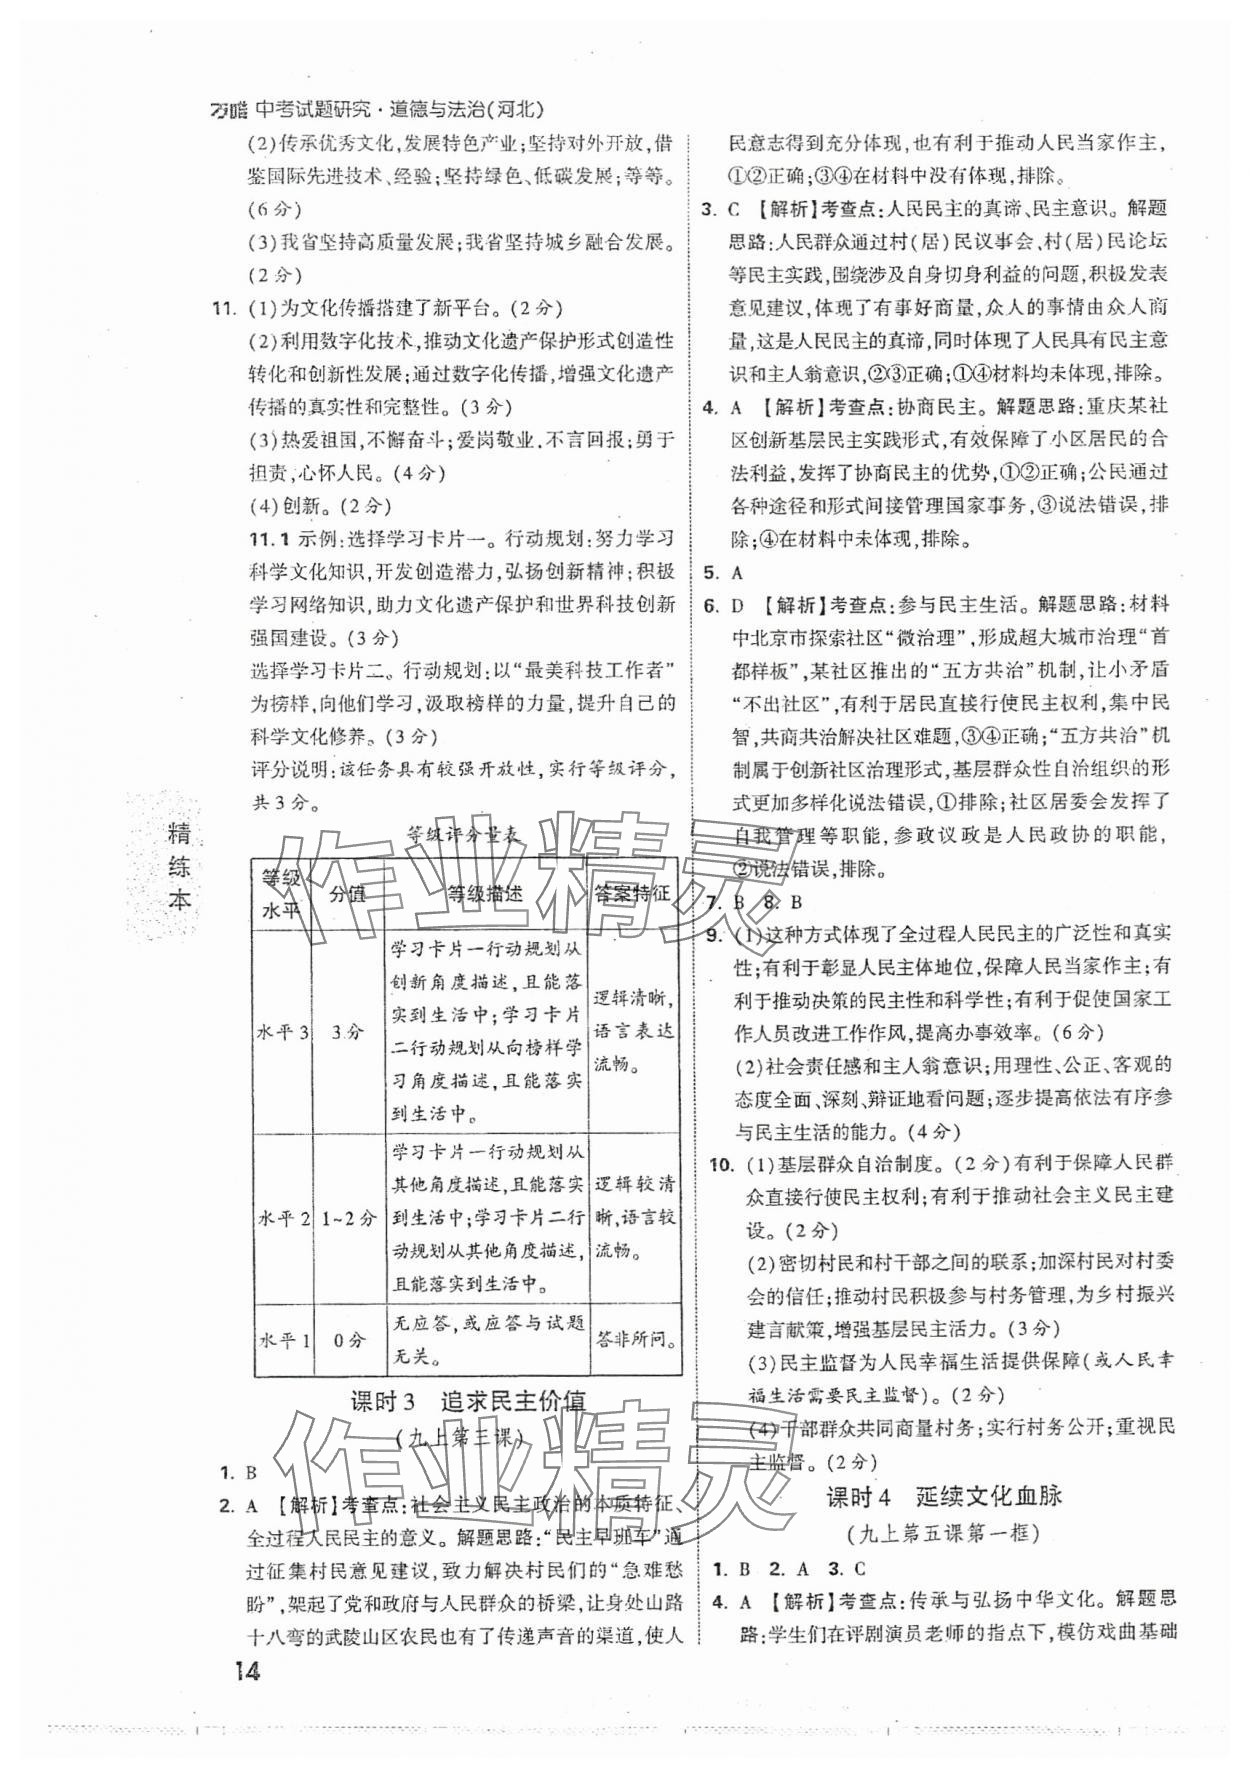 万唯 中考试题研究·道德与法治(河北)
(2)传承优秀文化,发展特色产业;坚持对外开放,借
鉴国际先进技术、经验;坚持绿色、低碳发展;等等。
(6分)
(3)我省坚持高质量发展;我省坚持城乡融合发展。
(2分)
11. (1)为文化传播搭建了新平台。(2分)
(2)利用数字化技术,推动文化遗产保护形式创造性
转化和创新性发展;通过数字化传播,增强文化遗产
传播的真实性和完整性。(3分)
(3)热爱祖国,不懈奋斗;爱岗敬业,不言回报;勇于
担责,心怀人民。(4分)
(4)创新。(2分)
11.1 示例:选择学习卡片一。行动规划:努力学习
科学文化知识,开发创造潜力,弘扬创新精神;积极
学习网络知识,助力文化遗产保护和世界科技创新
强国建设。(3分)
选择学习卡片二。行动规划:以“最美科技工作者”
为榜样,向他们学习,汲取榜样的力量,提升自己的
科学文化修养。(3分)
评分说明:该任务具有较强开放性,实行等级评分,
共3分。
等级评分量表
等级水平 分值 等级描述 答案特征
水平3 3分 学习卡片一行动规划从
创新角度描述,且能落
实到生活中;学习卡片
二行动规划从向榜样学
习角度描述,且能落实
到生活中。
逻辑清晰,
语言表达
流畅。
水平2 1~2分 学习卡片一行动规划从
其他角度描述,且能落实
到生活中;学习卡片二行
动规划从其他角度描述,
且能落实到生活中。
逻辑较清
晰,语言较
流畅。
水平1 0分 无应答,或应答与试题
无关。
答非所问。
课时3 追求民主价值
(九上第三课)
1. B
2. A 【解析】考查点:社会主义民主政治的本质特征、
全过程人民民主的意义。解题思路:“民主早班车”通
过征集村民意见建议,致力解决村民们的“急难愁
盼”,架起了党和政府与人民群众的桥梁,让身处山路
十八弯的武陵山区农民也有了传递声音的渠道,使人
民意志得到充分体现,也有利于推动人民当家作主,
①②正确;③④在材料中没有体现,排除。
3. C 【解析】考查点:人民民主的真谛、民主意识。解题
思路:人民群众通过村(居)民议事会、村(居)民论坛
等民主实践,围绕涉及自身切身利益的问题,积极发表
意见建议,体现了有事好商量,众人的事情由众人商
量,这是人民民主的真谛,同时体现了人民具有民主意
识和主人翁意识,②③正确;①④材料均未体现,排除。
4. A 【解析】考查点:协商民主。解题思路:重庆某社
区创新基层民主实践形式,有效保障了小区居民的合
法利益,发挥了协商民主的优势,①②正确;公民通过
各种途径和形式间接管理国家事务,③说法错误,排
除;④在材料中未体现,排除。
5. A
6. D 【解析】考查点:参与民主生活。解题思路:材料
中北京市探索社区“微治理”,形成超大城市治理“首
都样板”,某社区推出的“五方共治”机制,让小矛盾
“不出社区”,有利于居民直接行使民主权利,集中民
智,共商共治解决社区难题,③④正确;“五方共治”机
制属于创新社区治理形式,基层群众性自治组织的形
式更加多样化说法错误,①排除;社区居委会发挥了
自我管理等职能,参政议政是人民政协的职能,
②说法错误,排除。
7. B 8. B
9. (1)这种方式体现了全过程人民民主的广泛性和真实
性;有利于彰显人民主体地位,保障人民当家作主;有
利于推动决策的民主性和科学性;有利于促使国家工
作人员改进工作作风,提高办事效率。(6分)
(2)社会责任感和主人翁意识;用理性、公正、客观的
态度全面、深刻、辩证地看问题;逐步提高依法有序参
与民主生活的能力。(4分)
10. (1)基层群众自治制度。(2分)有利于保障人民群
众直接行使民主权利;有利于推动社会主义民主建
设。(2分)
(2)密切村民和村干部之间的联系;加深村民对村委
会的信任;推动村民积极参与村务管理,为乡村振兴
建言献策,增强基层民主活力。(3分)
(3)民主监督为人民幸福生活提供保障(或人民幸
福生活需要民主监督)。(2分)
(4)干部群众共同商量村务;实行村务公开;重视民
主监督。(2分)
课时4 延续文化血脉
(九上第五课第一框)
1. B 2. A 3. C
4. A 【解析】考查点:传承与弘扬中华文化。解题思
路:学生们在评剧演员老师的指点下,模仿戏曲基础
精
练
本
14
作业精灵
作业精灵